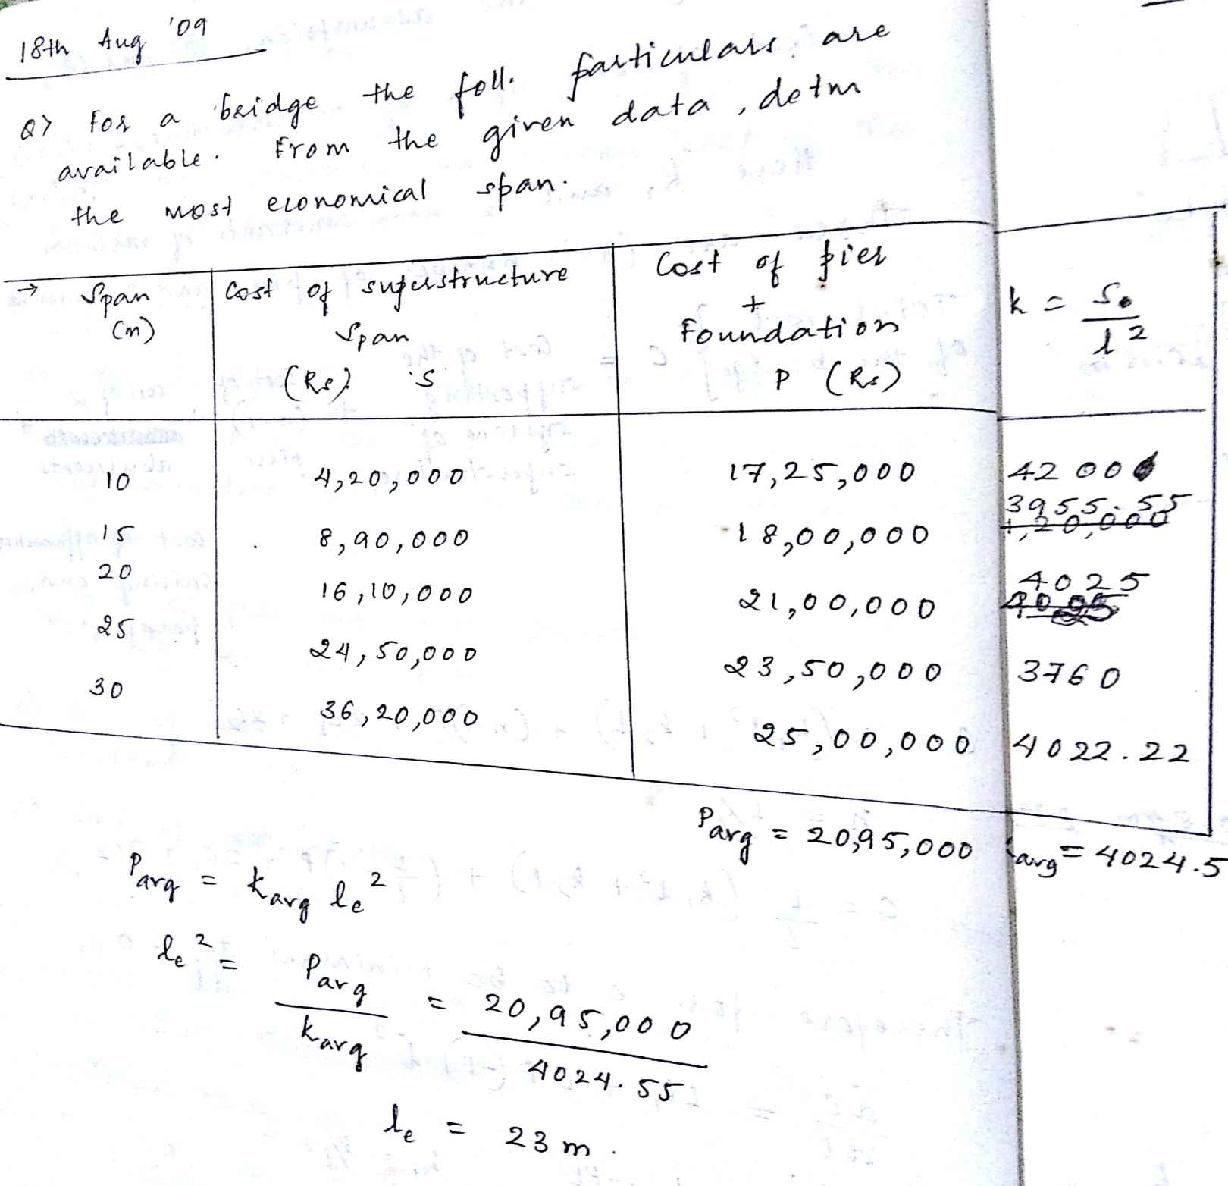 18th Aug '09
Q> For a bridge the foll. particulars are
available. From the given data, detm
the most economical span.
→ Span (m) Cost of superstructure Span (Rs) S Cost of pier + Foundation P (Rs) k = S₀ / l²
10 4,20,000 17,25,000 4200
15 8,90,000 18,00,000 3955.55
20 16,10,000 21,00,000 4025
25 24,50,000 23,50,000 3760
30 36,20,000 25,00,000 4022.22
Pavg = 20,95,000 kavg = 4024.5
Pavg = kavg le²
le² = Pavg / kavg = 20,95,000 / 4024.55
le = 23 m.